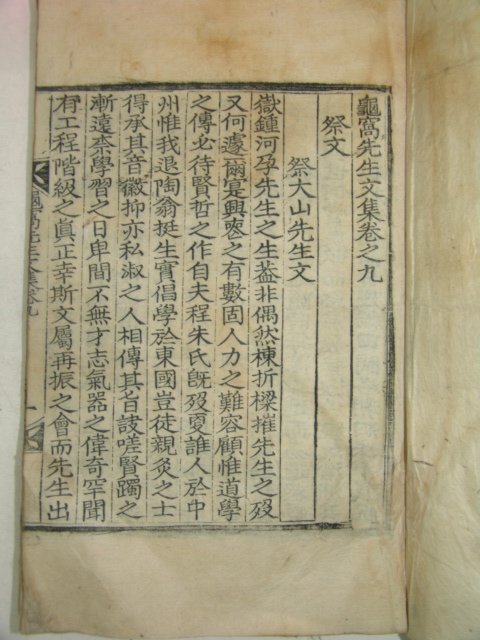 龜窩先生文集卷之九
祭文
祭大山先生文
嶽鍾河孕先生之生蓋非偶然棟折樑摧先生之歿
又何遽爾寔興喪之有數固人力之難容顧惟道學
之傳必待賢哲之作自夫程朱氏旣歿夏誰人於中
州惟我退陶翁挺生實倡學於東國豈徒親炙之士
得承其音徽抑亦私淑之人相傳其旨訣嗟賢躅之
漸遠柰學習之日卑間不無才志氣器之偉奇罕聞
有工程階級之眞正幸斯文屬再振之會而先生出
龜窩先生文集卷九
一